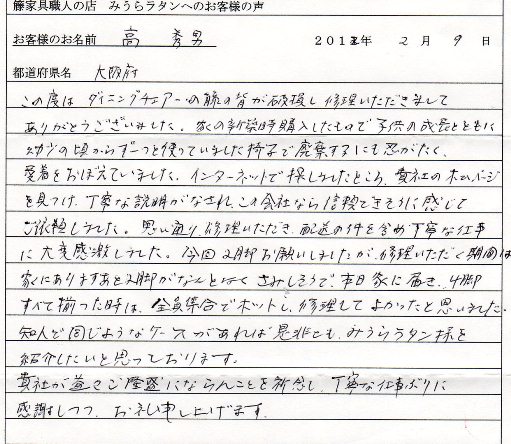 籐家具職人の店 みうらラタンへのお客様の声
お客様のお名前 高 秀男 201 年 2月 9日
都道府県名 大阪府
この度はダイニングチェアーの籐の背が破損し修理いただきまして
ありがとうございました。家の新築時購入したもので子供の成長とともに
幼少の頃からずーっと使っていました椅子で廃棄するにも忍がたく、
愛着をおぼえていました。インターネットで探しましたところ、貴社のホームページ
を見つけ、丁寧な説明がなされ、この会社なら信頼できそうに感じて
ご依頼しました。思い通り修理いただき、配送の件を含め丁寧な仕事
に大変感激しました。今回2脚お願いしましたが、修理いただく期間は
家にありますあと2脚がなんとなくさみしそうで、本日家に届き、4脚
すべて揃った時は、全員集合でホットし、修理してよかったと思いました。
知人で同じようなケースがあれば是非とも、みうらラタン様を
紹介したいと思っております。
貴社が益々ご隆盛にならんことを祈念し、丁寧な仕事ぶりに
感謝しつつ、お礼申し上げます。